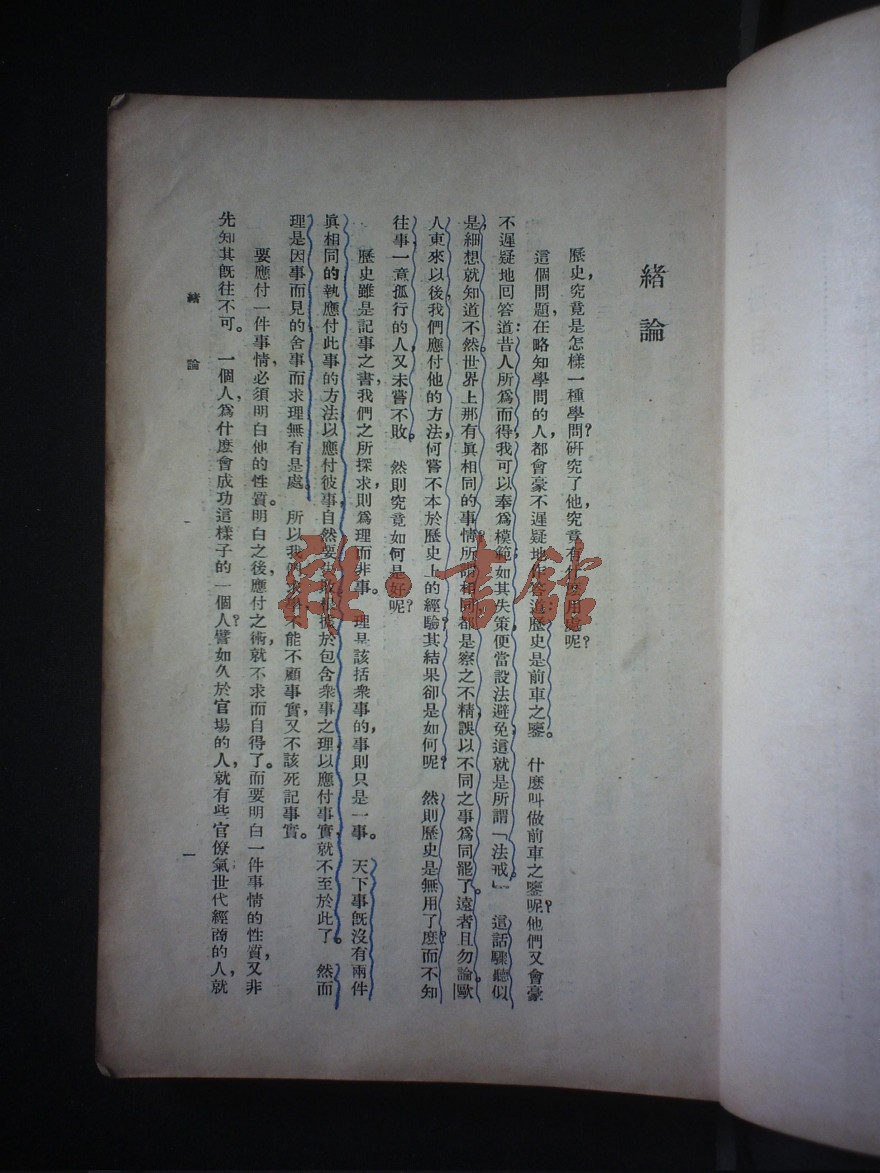 緒論
歷史，究竟是怎樣一種學問？研究了他，究竟有什麼用處呢？
這個問題，在略知學問的人，都會毫不遲疑地作答道：歷史是前車之鑒。什麼叫做前車之鑒呢？他們又會毫
不遲疑地回答道：昔人所為而得，我可以奉為模範；如其失策，便當設法避免；這就是所謂「法戒」。這話驟聽似
是，細想就知道不然。世界上那有真相同的事情？所謂相同，都是察之不精，誤以不同之事為同罷了。遠者且勿論。歐
人東來以後，我們應付他的方法，何嘗不本於歷史上的經驗？其結果卻是如何呢？然則歷史是無用了麼？而不知
往事，一意孤行的人，又未嘗不敗。然則究竟如何是好呢？
歷史雖是記事之書，我們之所探求，則為理而非事。理是該括眾事的，事則只是一事。天下事既沒有兩件
真相同的，執應付此事的方法，以應付彼事，自然要失敗。根據於包含眾事之理，以應付事實，就不至於此了。然而
理是因事而見的，舍事而求理，無有是處。所以我們求學，不能不顧事實，又不該死記事實。
要應付一件事情，必須明白他的性質。明白之後，應付之術，就不求而自得了。而要明白一件事情的性質，又非
先知其既往不可。一個人，為什麼會成功這樣子的一個人？譬如久於官場的人，就有些官僚氣；世代經商的人，就
緒論
一
雜·書館